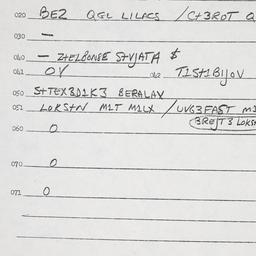 020 BEZ QGL LILACS /C+3ROT Q
030 —
040 — Z+ELBONSE S+VJATA $
041 OV 042 T1S+1B1JOV
050 S+TEXBD1K3 BERALAV
051 LOKS+N M1T M1LX /UVG3FAST M1
BREJT3 LOKS+
060 O
070 O
071 O